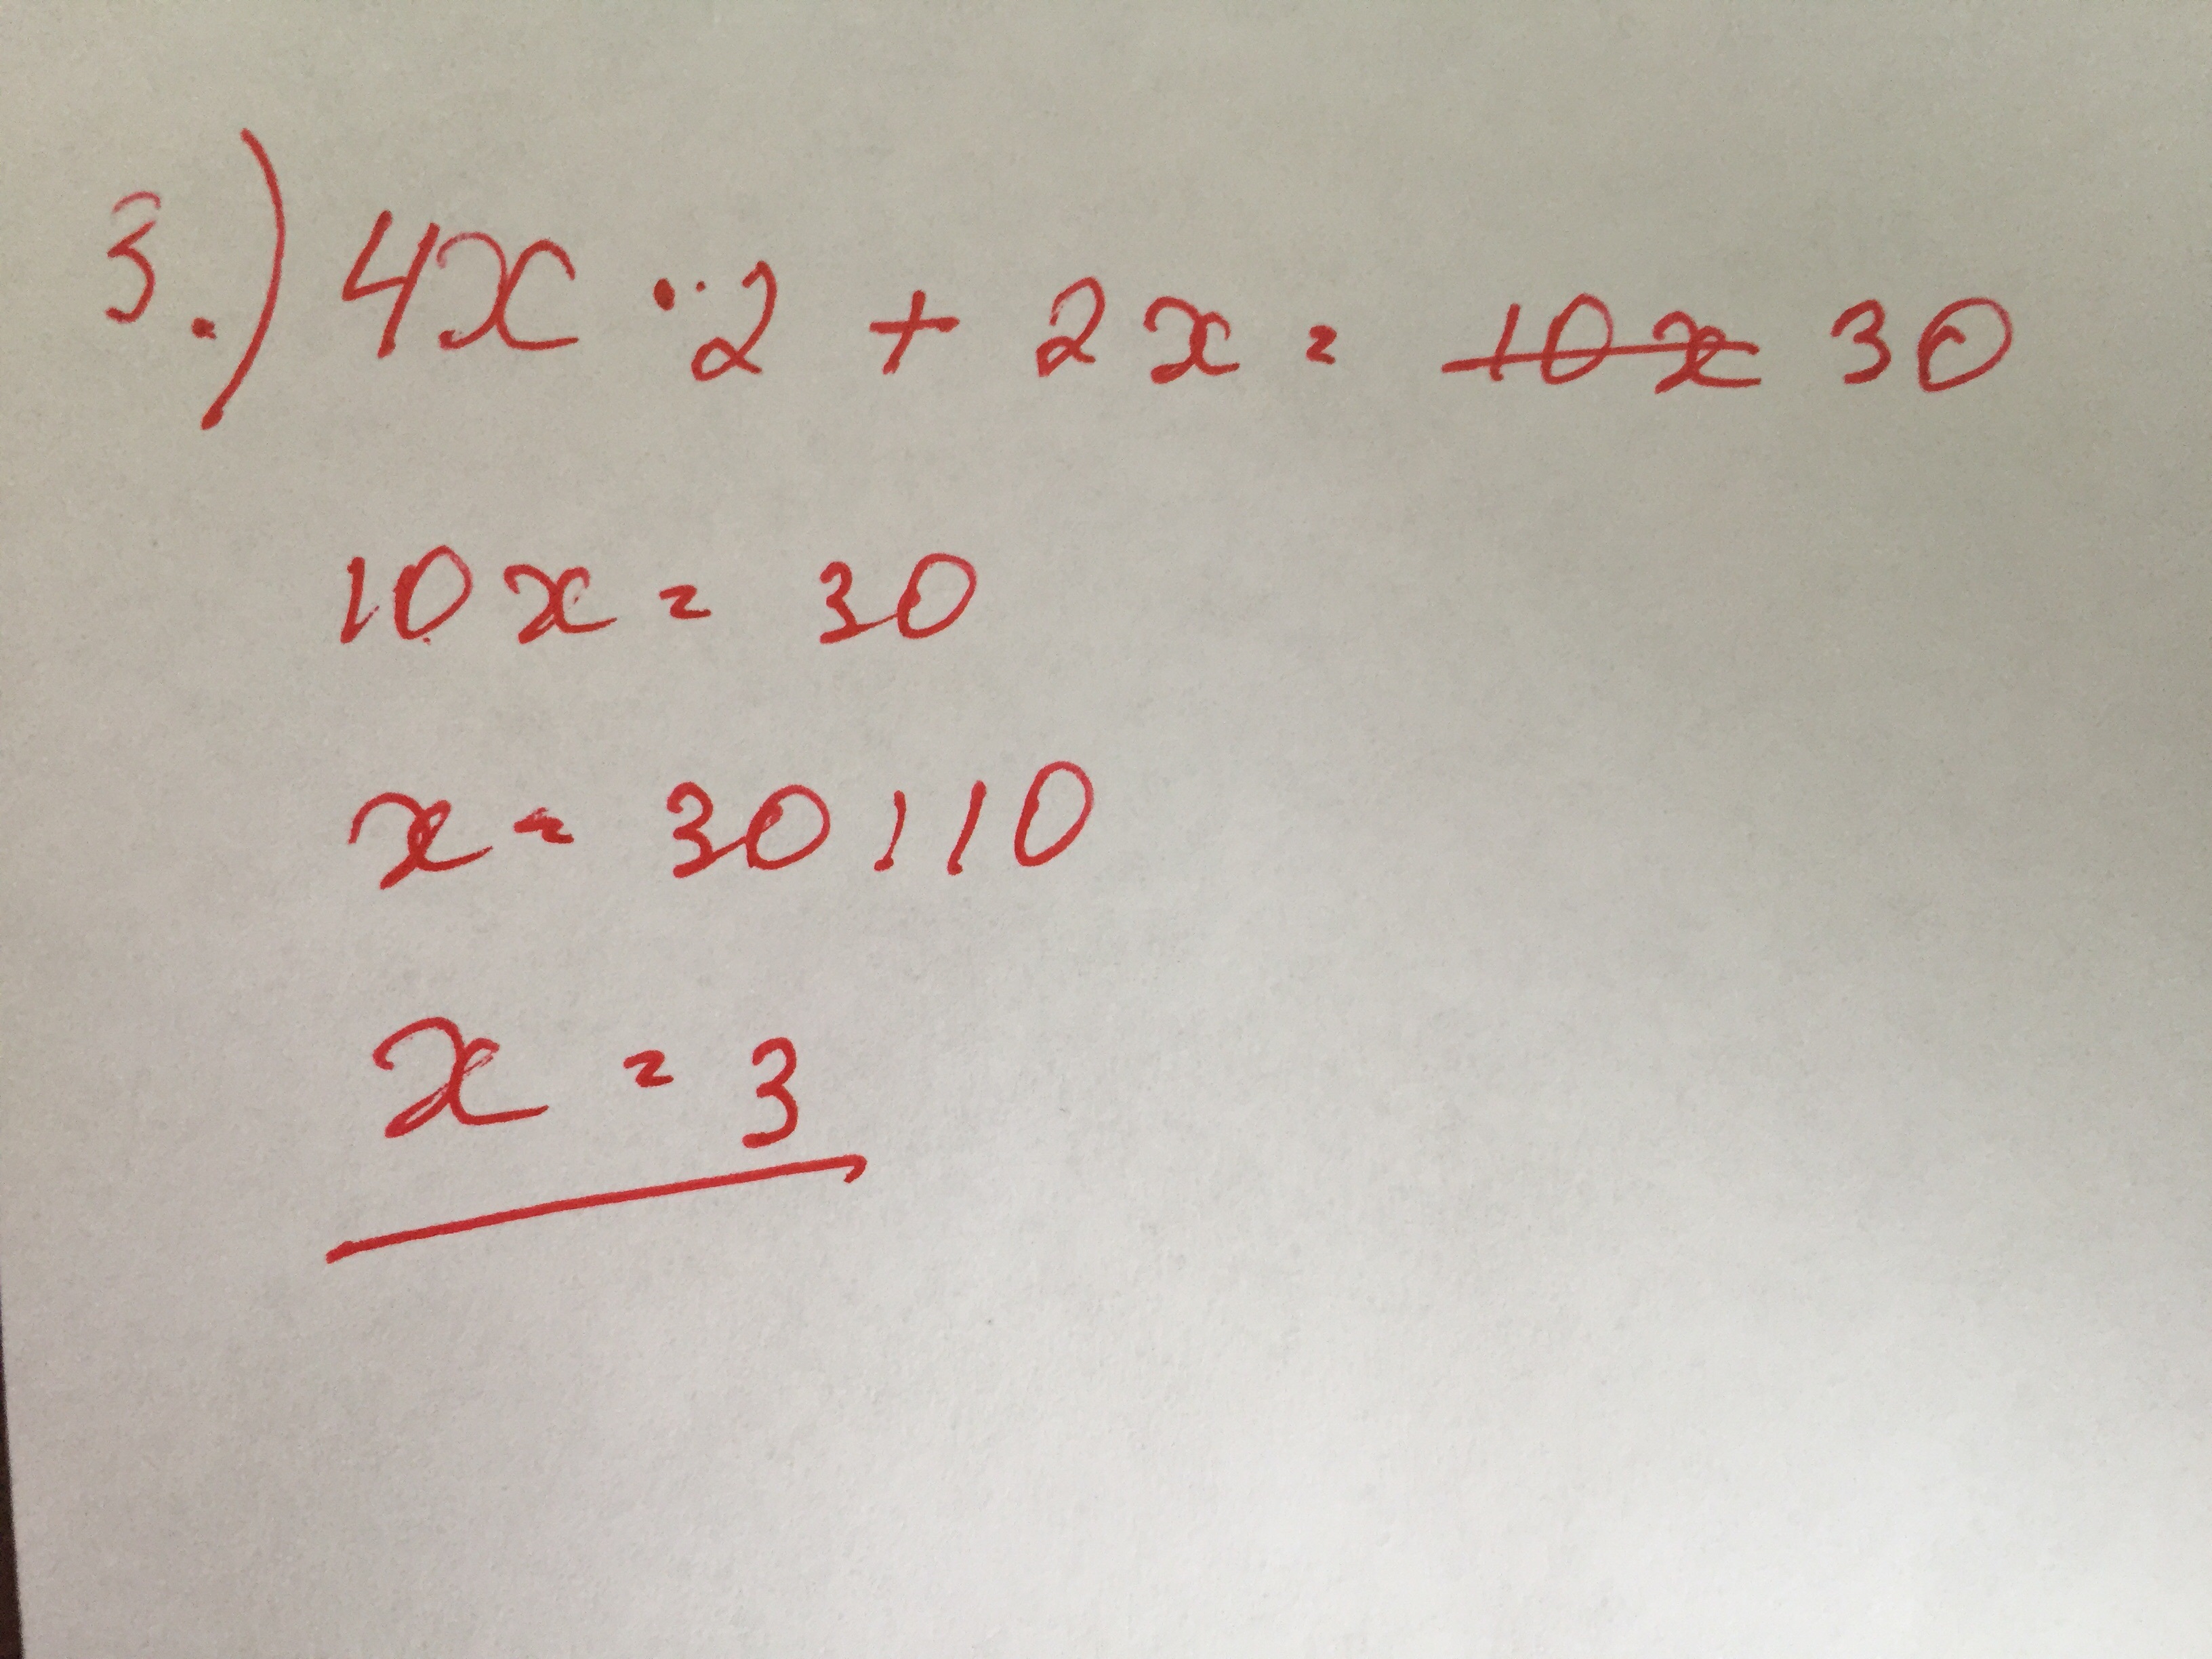 3.) 4x · 2 + 2x = 10x 30
10x = 30
x = 30/10
x = 3